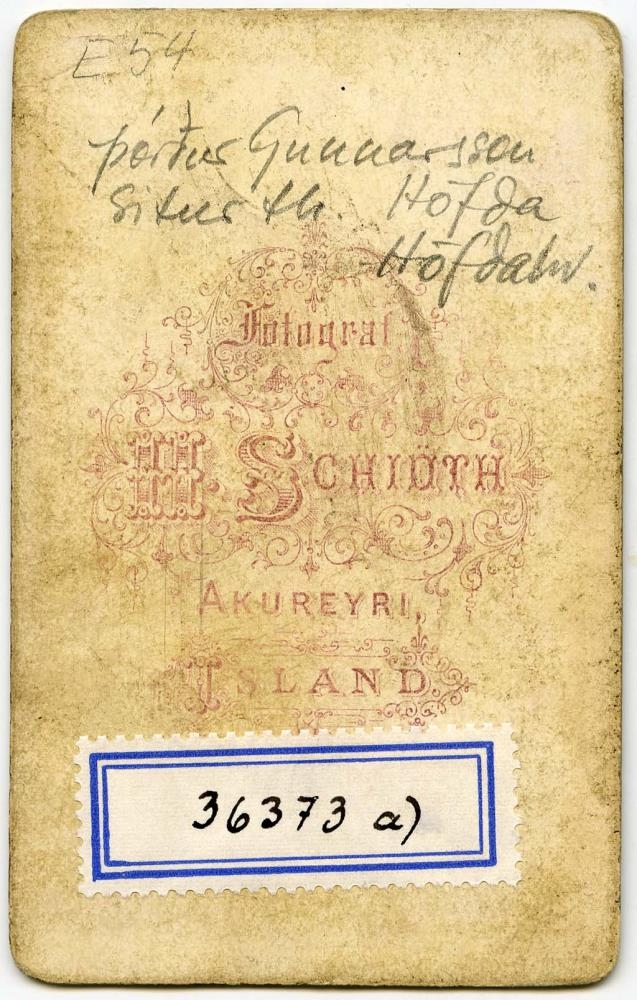 E 54
Þórður Gunnarsson
situr th. Höfða
Höfðahv.
Fotograf
H. SCHIÖTH
AKUREYRI,
ISLAND.
36373 a)